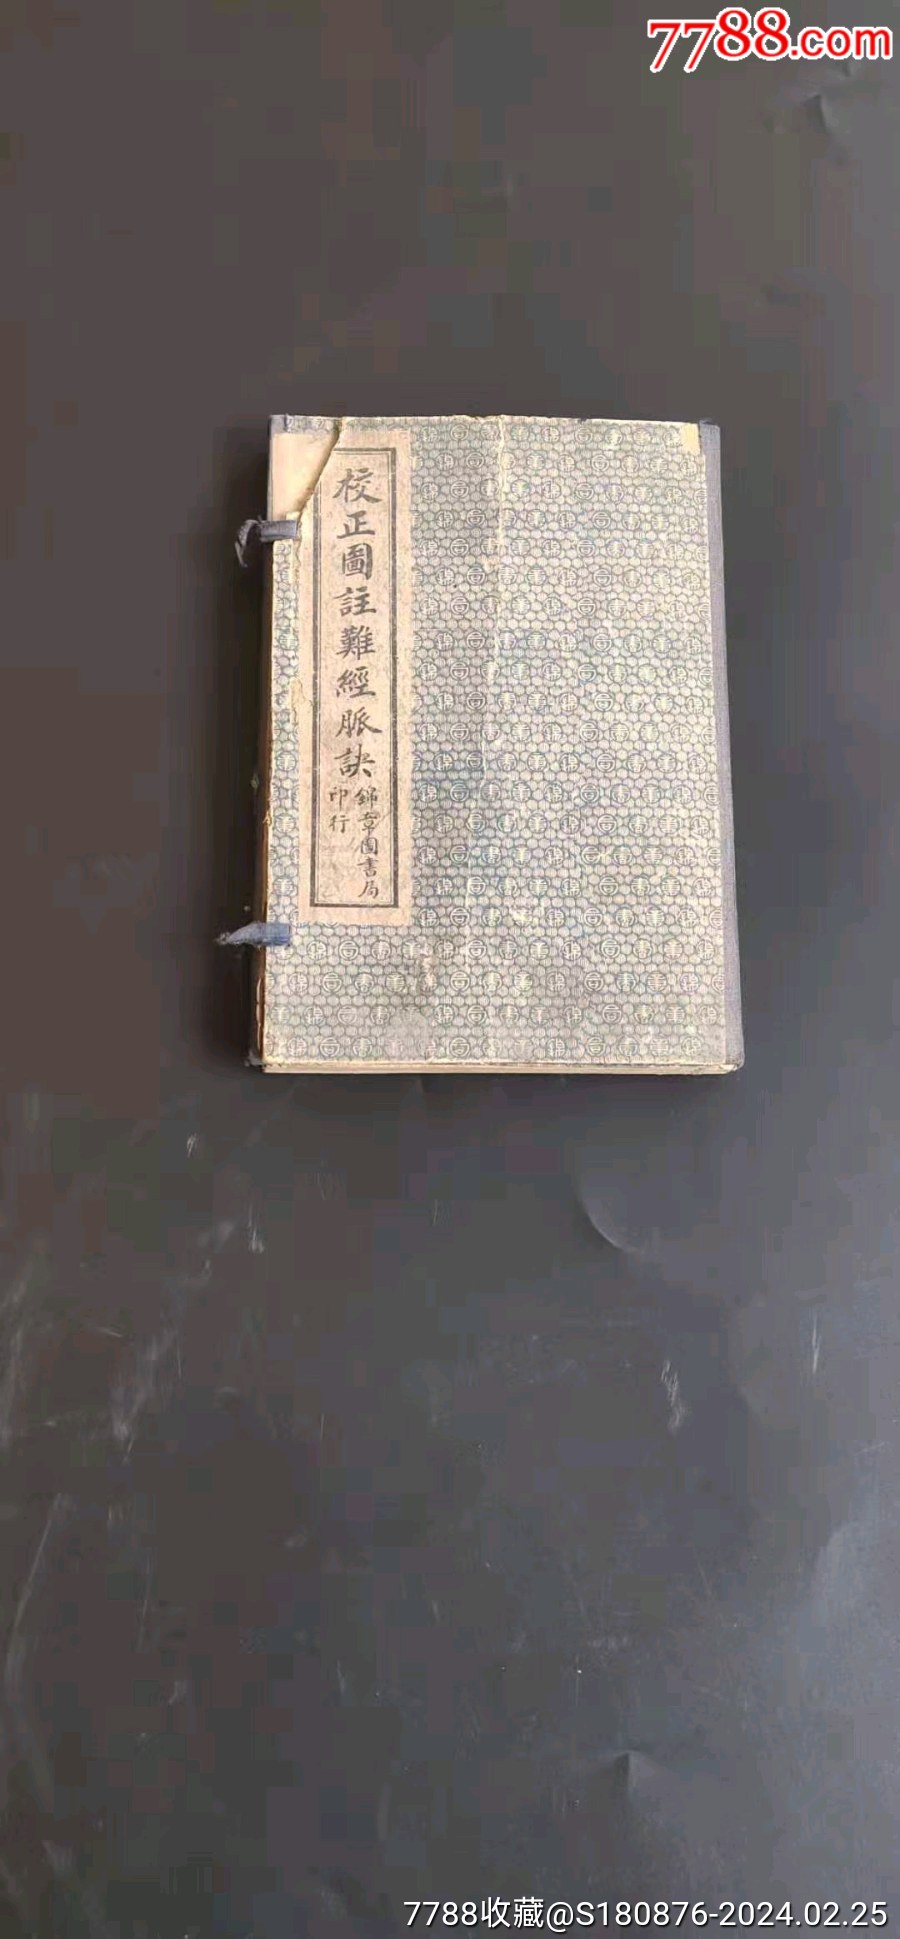 7788.com
校正圖註難經脈訣
錦章圖書局
印行
7788收藏@S180876-2024.02.25